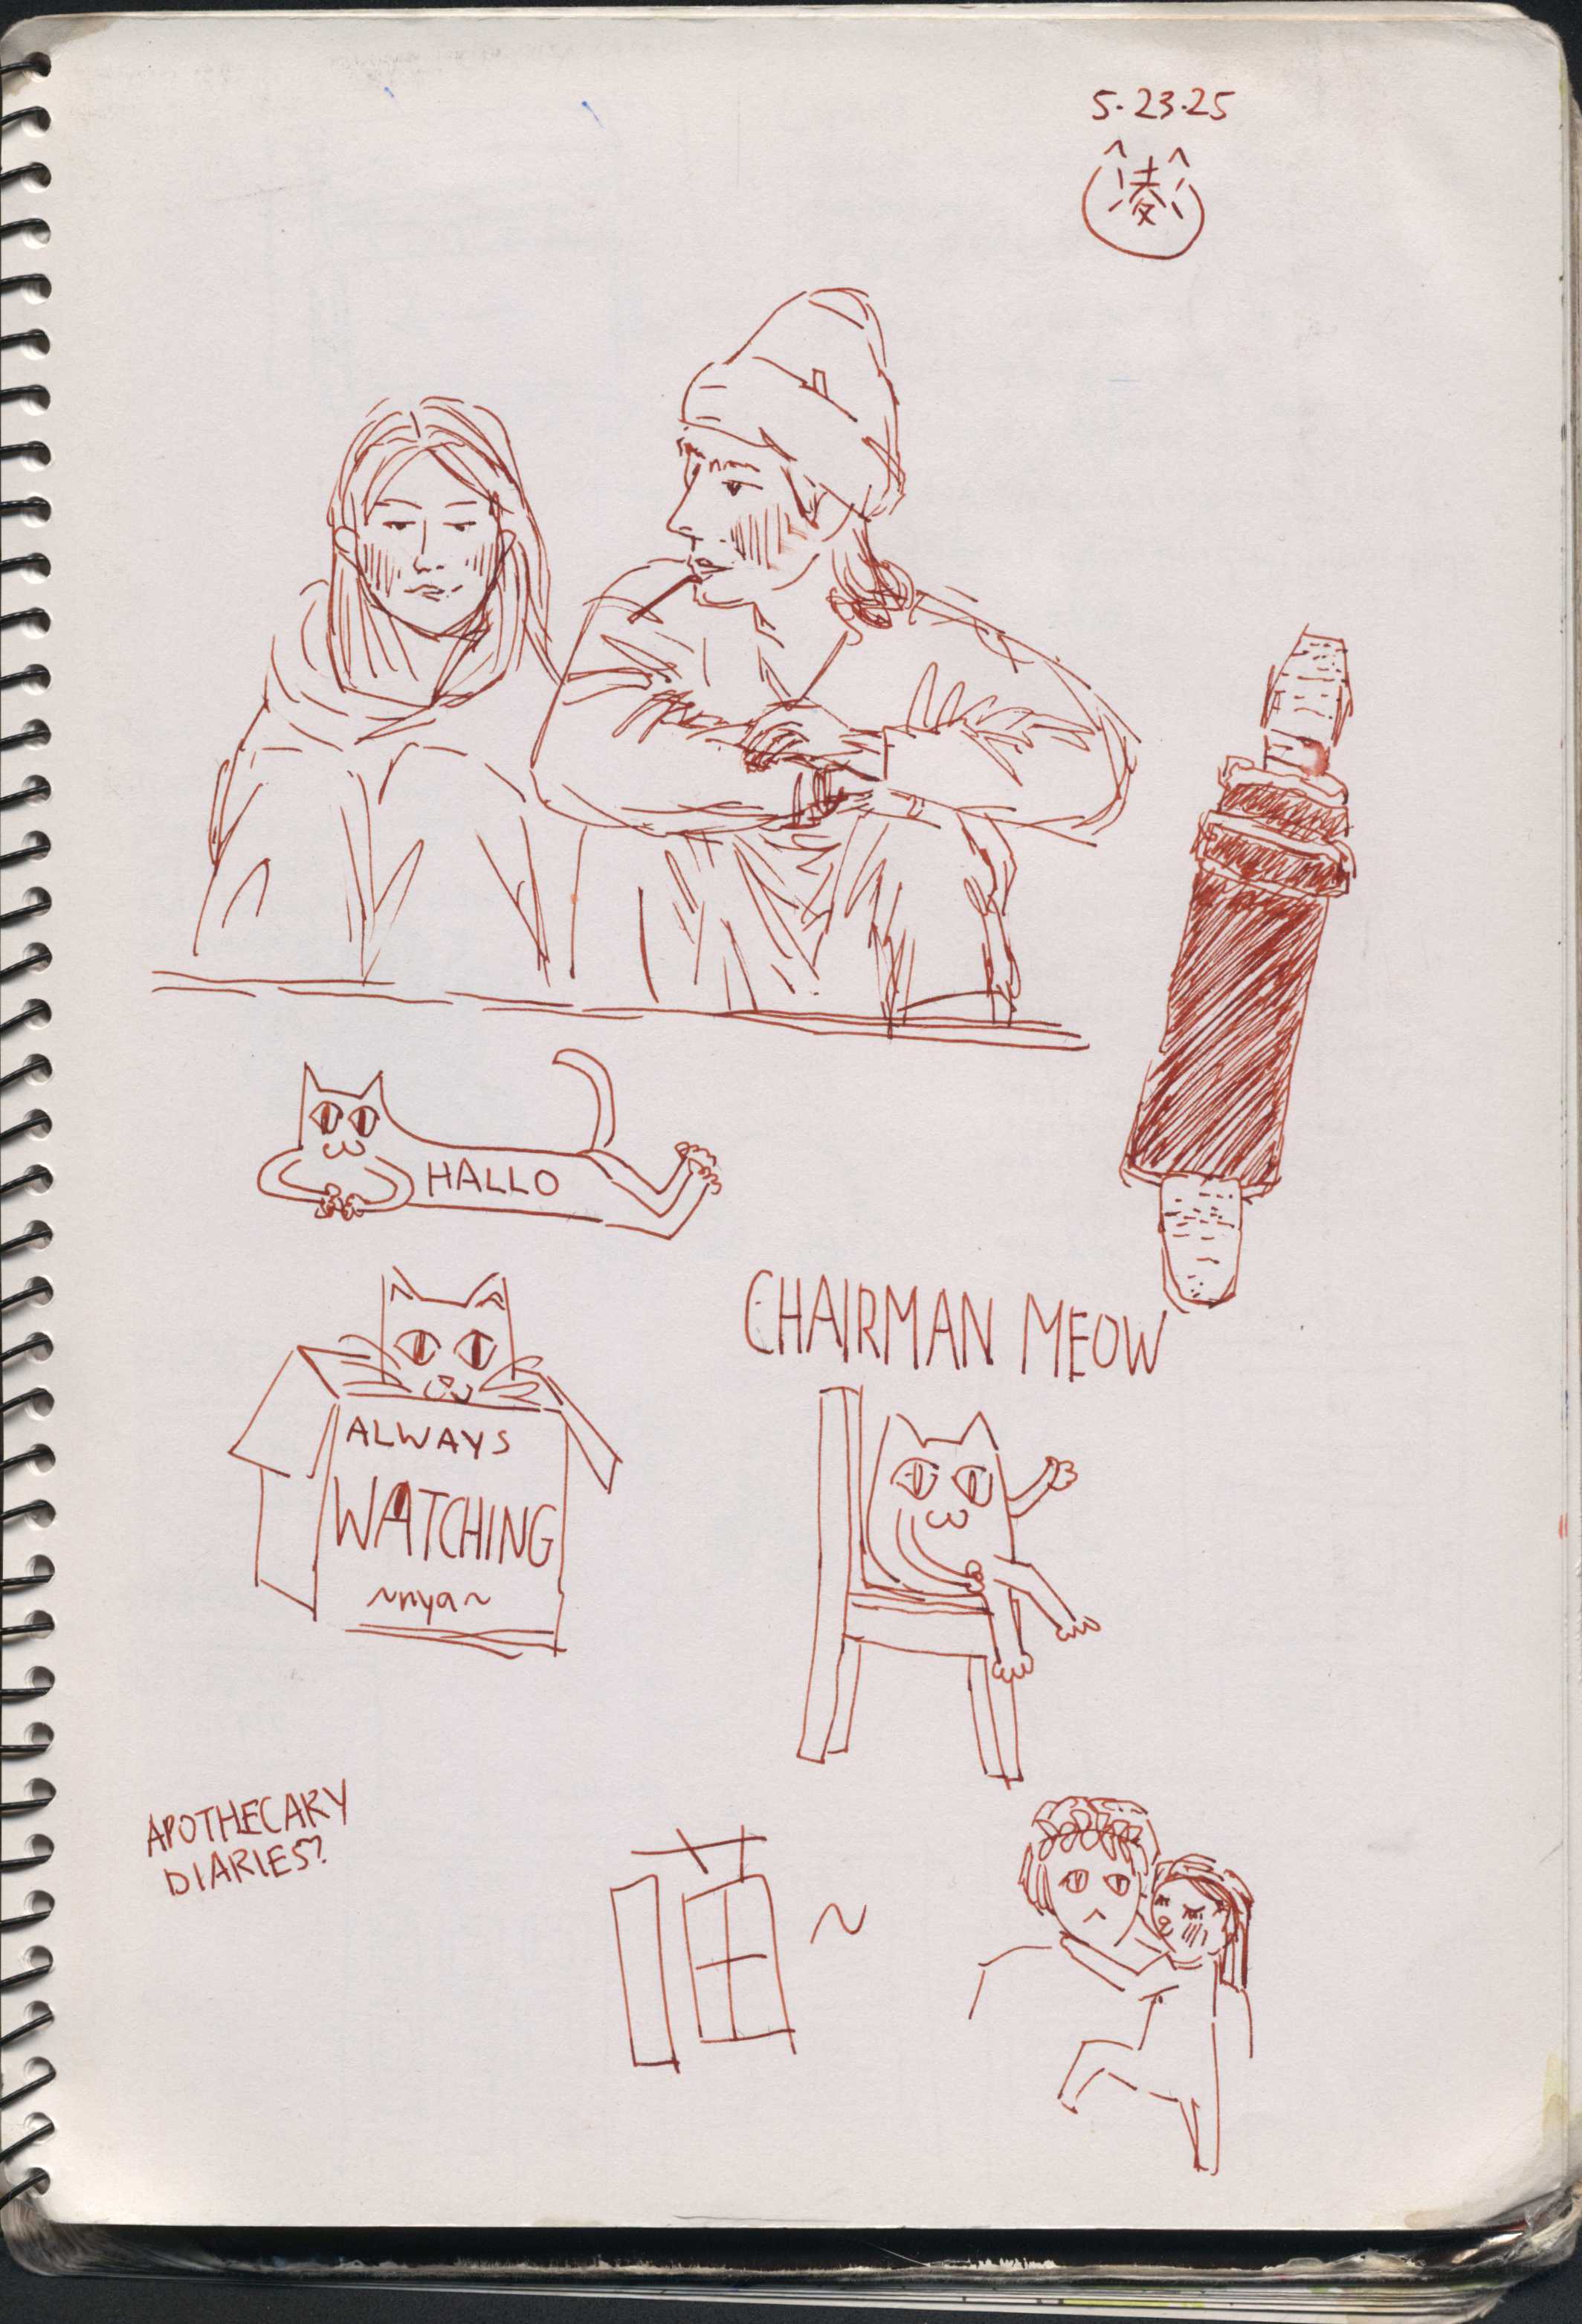 5.23.25
凌
HALLO
CHAIRMAN MEOW
ALWAYS
WATCHING
~nya~
APOTHECARY
DIARIES?
喵~